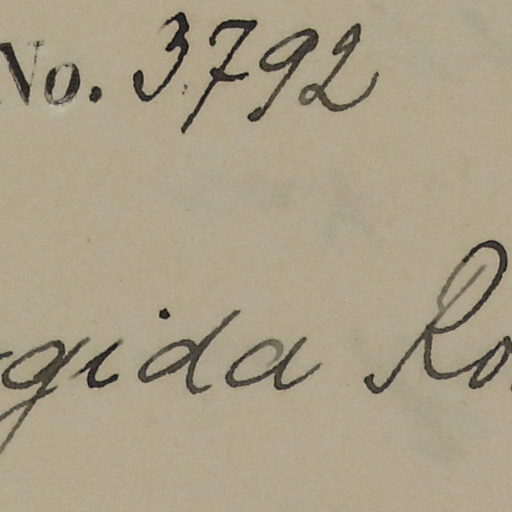 No. 3792
gida Ro